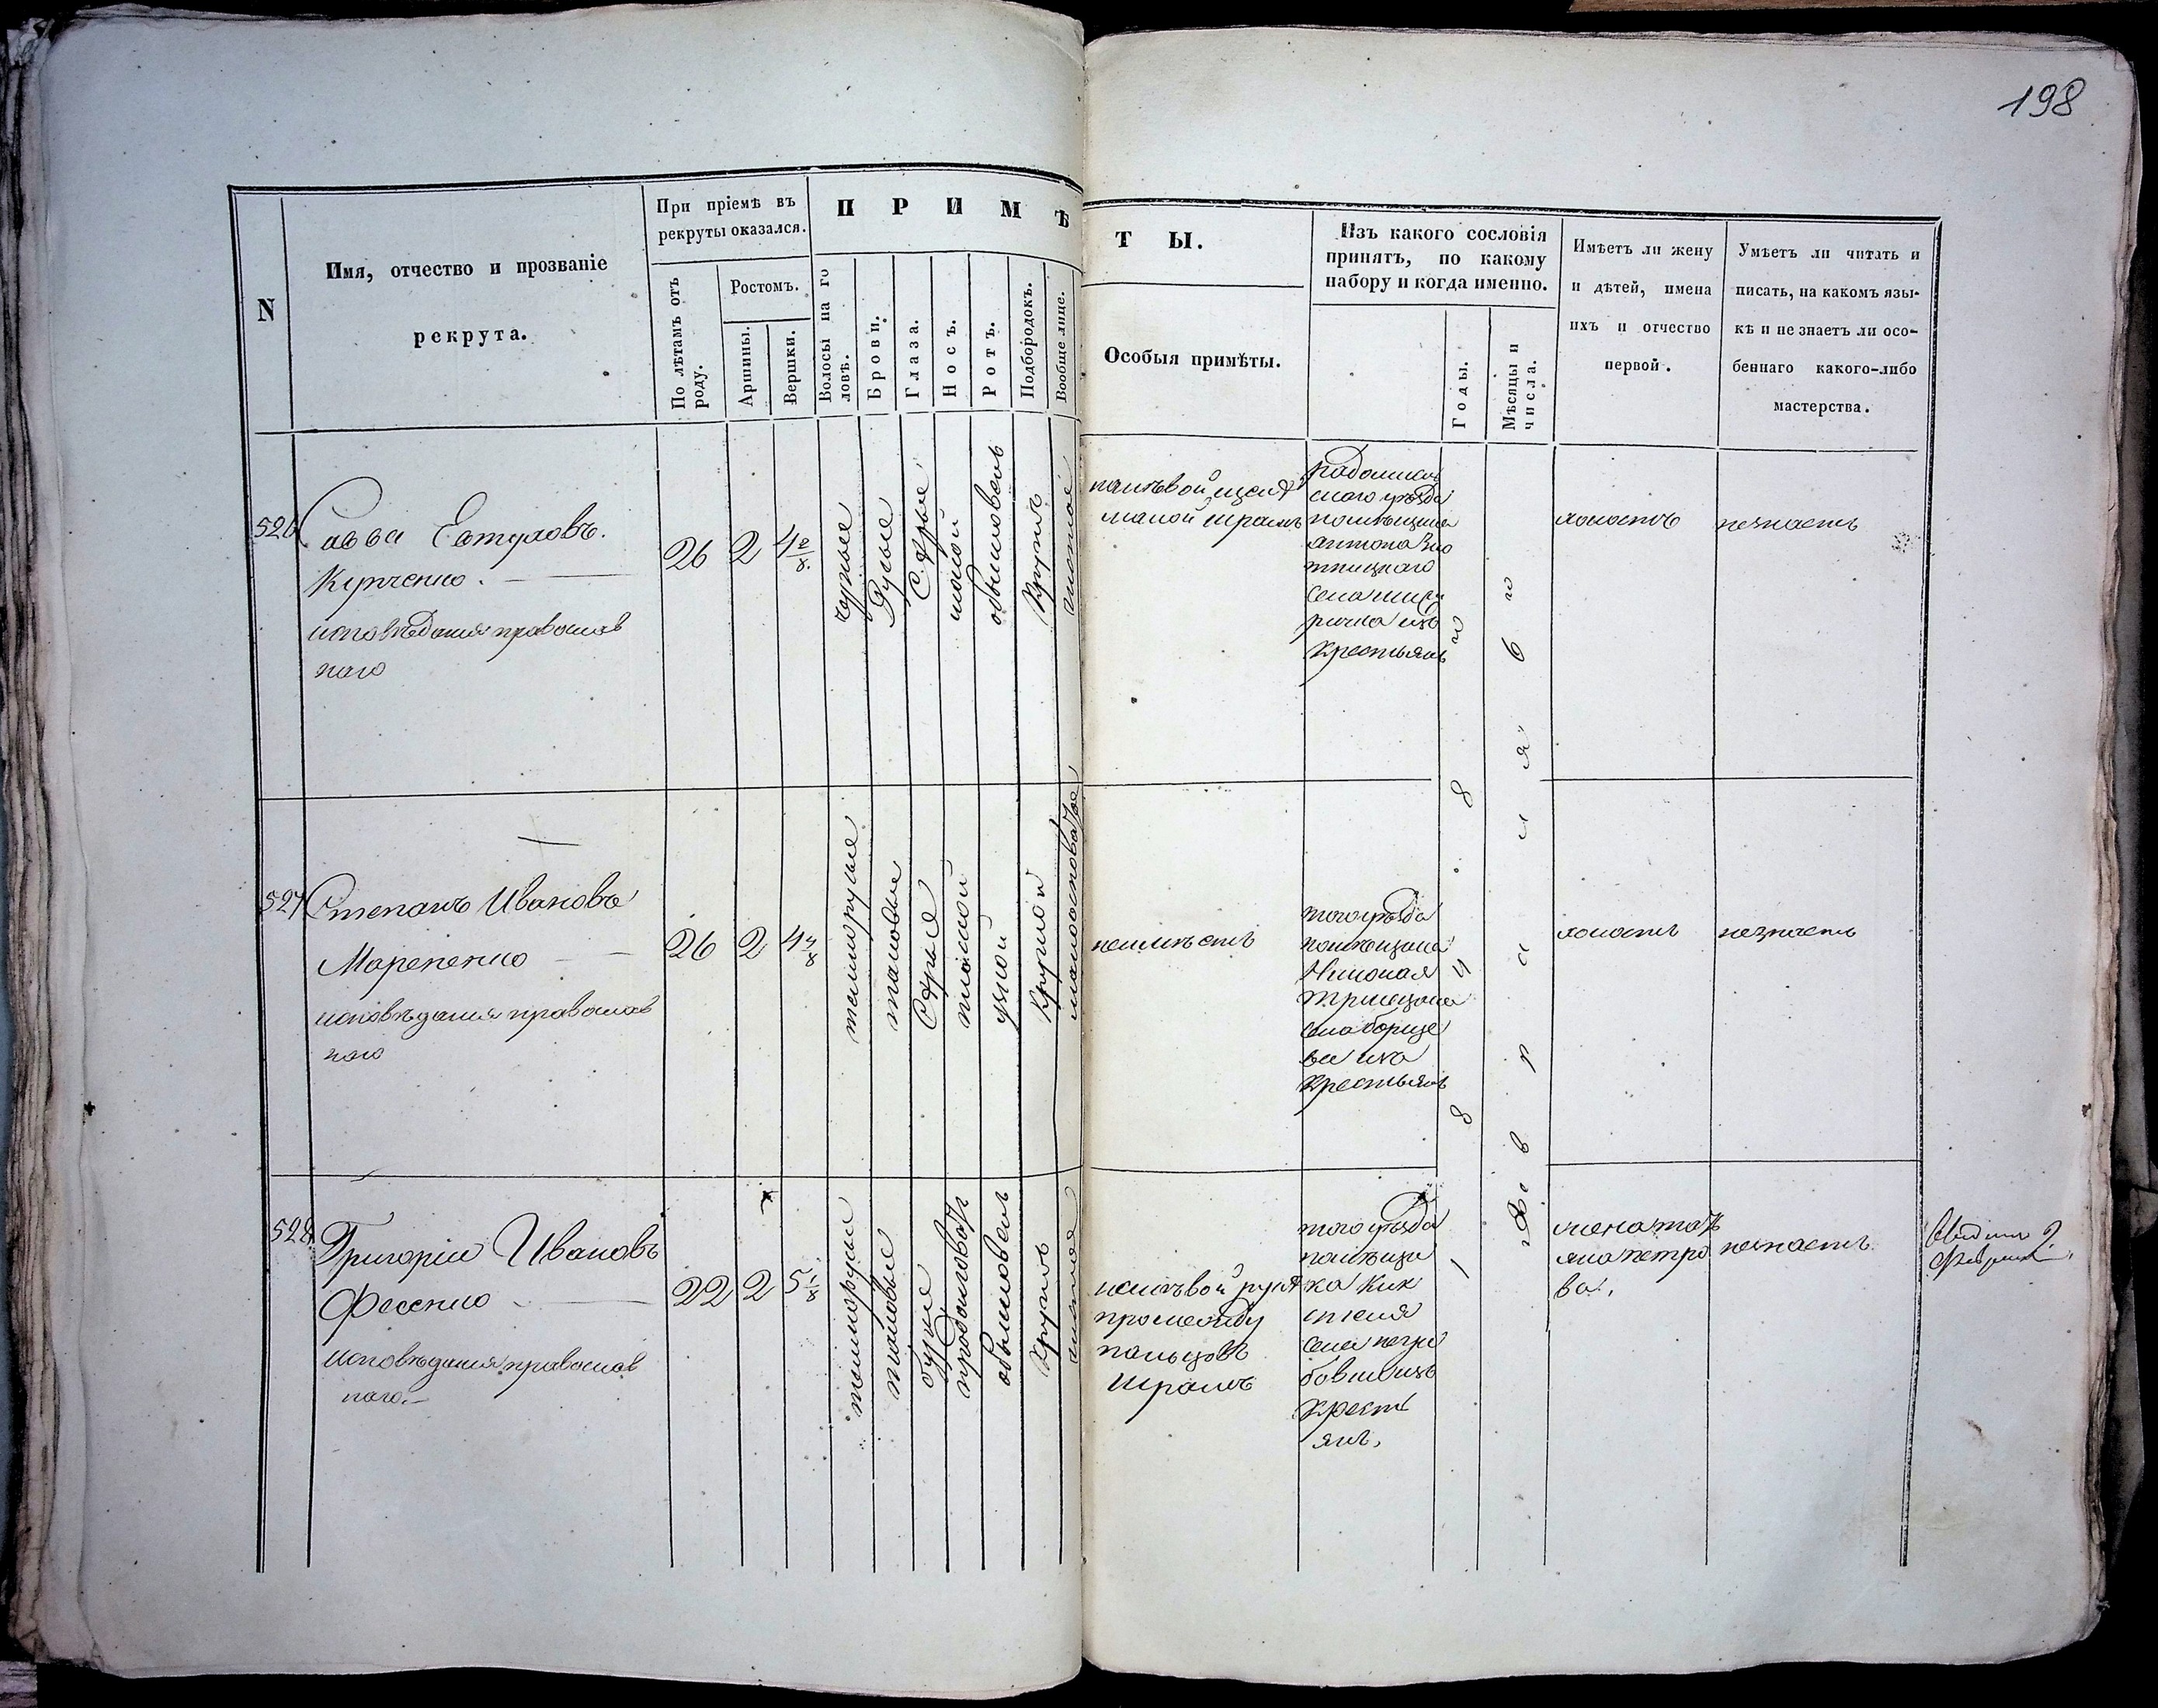 198
N
Имя, отчество и прозваніе
рекрута.
При пріемѣ въ
рекруты оказался.
По лѣтамъ отъ
роду.
Ростомъ.
Аршины.
Вершки.
П Р И М Ѣ
Т Ы.
Волосы на го
ловѣ.
Брови.
Глаза.
Носъ.
Ротъ.
Подбородокъ.
Вообще лице.
Особыя примѣты.
Изъ какого сословія
принятъ, по какому
набору и когда именно.
Годы.
Мѣсяцы и
числа.
Имѣетъ ли жену
и дѣтей, имена
ихъ и отчество
первой.
Умѣетъ ли читать и
писать, на какомъ язы-
кѣ и не знаетъ ли осо-
беннаго какого-либо
мастерства.
526
Савва Евтуховъ.
Купченко.
исповѣданія православ
наго
26
2
4 2/8.
черные
Русые
Сѣрые
малой
обыкновенъ
Кругл
чистое
налѣвой щекѣ
малой шрамъ
помѣщика
Антона
села
Крестьянъ
холостъ
незнаетъ
527
Степанъ Ивановъ
Марененко
исповѣданія православ
наго
26
2
4 4/8
темнорусые
таковые
Сѣрые
малой
Круглой
неимѣетъ
того уѣзда
помѣщика
Николая
села Борще
ва изъ
Крестьянъ
холостъ
незнаетъ
528
Григорій Ивановъ
Фесенко
исповѣданія православ
наго.
22
2
5 1/8
темнорусые
таковые
продолговатъ
обыкновенъ
Круглъ
чистое
налѣвой рукѣ
промежду
пальцовъ
шрамъ
того уѣзда
помѣщи
ка
села
изъ
Кресть
янъ,
1848 2
Февраля 6 го
жена тать
яна петро
ва,
незнаетъ